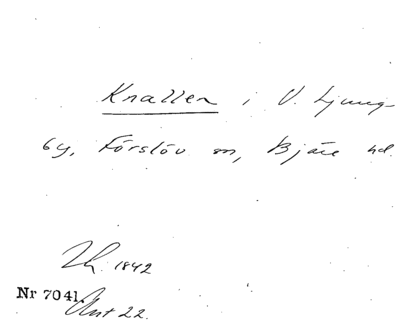 Knallen i V. Ljung-
by, Förslöv sn, Bjäre hd.
Lh. 1842
Nr 7041. Avst 22.